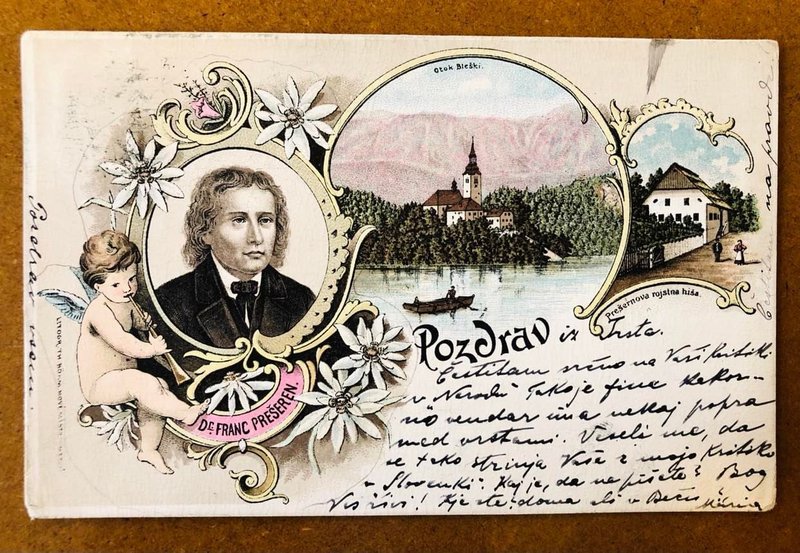 Otok Bleški.
Prešernova rojstna hiša.
DR. FRANC PREŠEREN.
Pozdrav iz Trsta.
Čestitam srčno na Vaši kritiki
v "Narodu". Tako je fine kakor-
no vendar ima nekaj popra
med vrstami. Veseli me, da
se tako strinja Vaša z mojo kritiko
v Slovenki. Kaj je, da ne pišete? Bog
Vas živi! Kje ste: doma ali v Beču?
Pozdrav
na